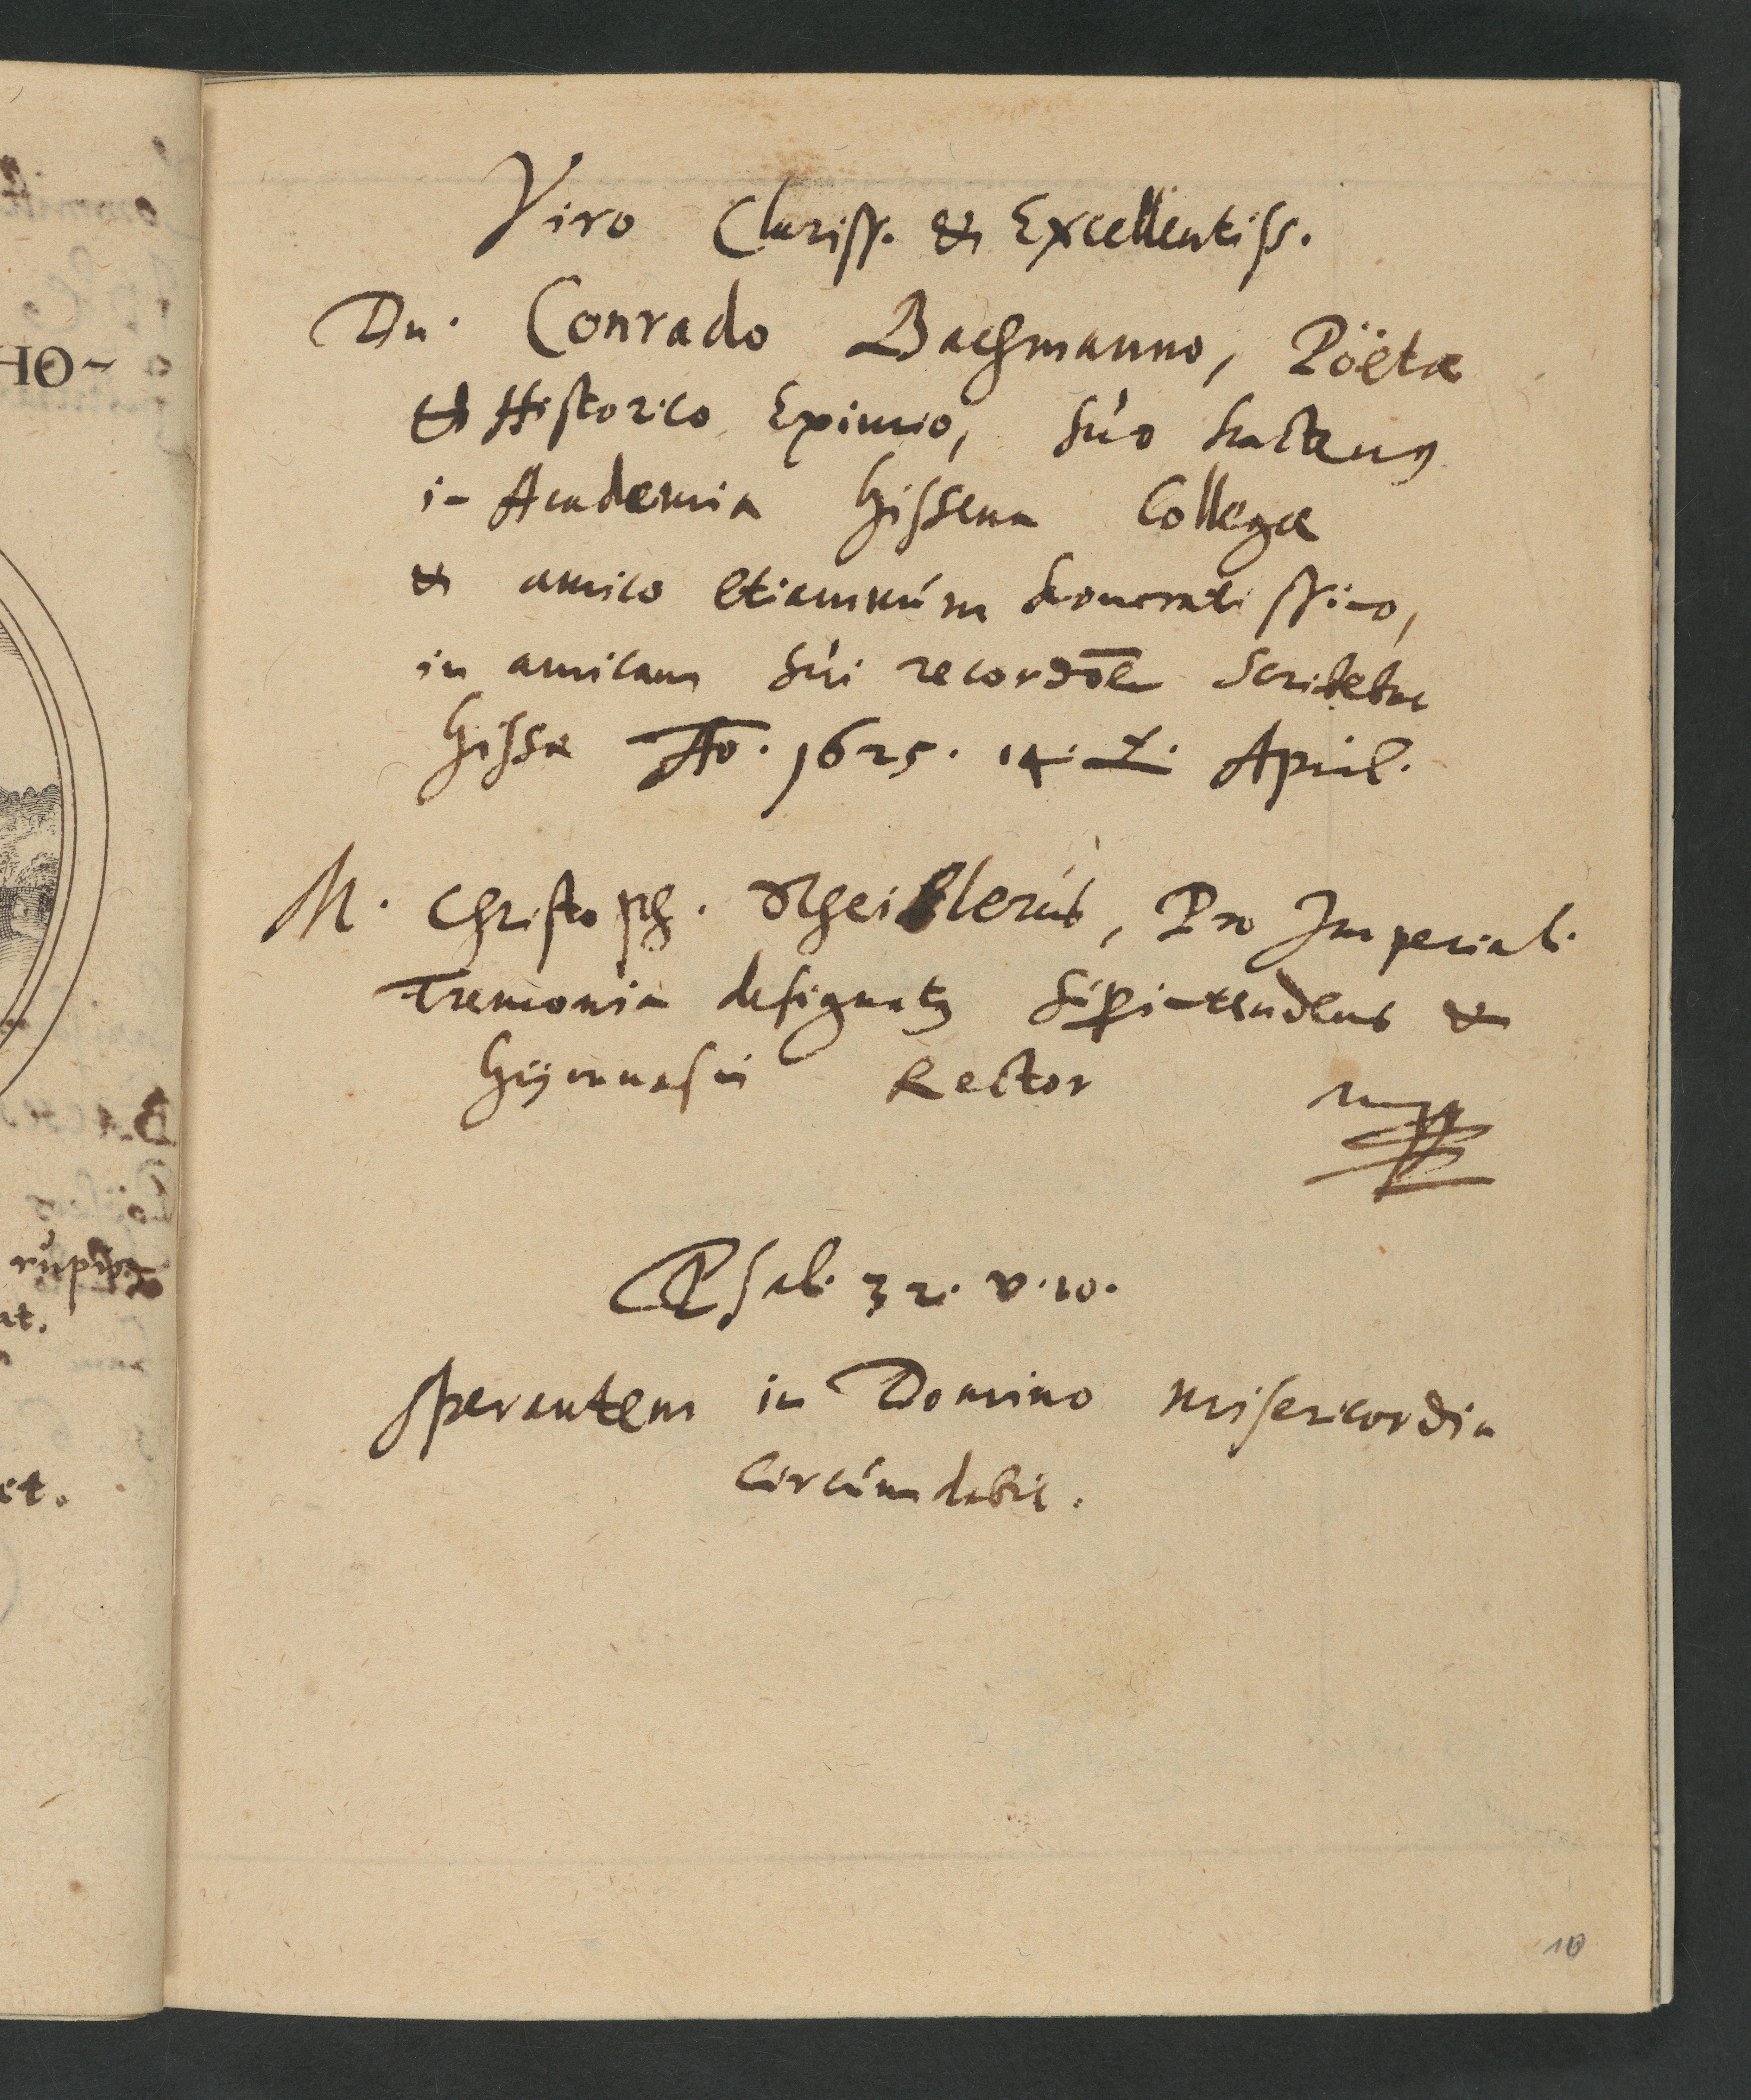 Viro Clariss. & Excellentiss.
Dn. Conrado Bachmanno, Pöëtæ
& Historico Eximio, suo hactenus
in Academia Gissena Collegæ
& amico etiamnúm honoratissimo,
in amicam sui recordōem scribebat
Gissæ Ao. 1625. 14. April.
M. Christoph. Scheiblerus, Pro Imperial.
Tremonia designatus Supintendens &
Gymnasii Rector
mpp
Psal. 32. v. 10.
Sperantem in Domino misericordia
circúmdabit.
10
HO-
rupib9
at.
et.